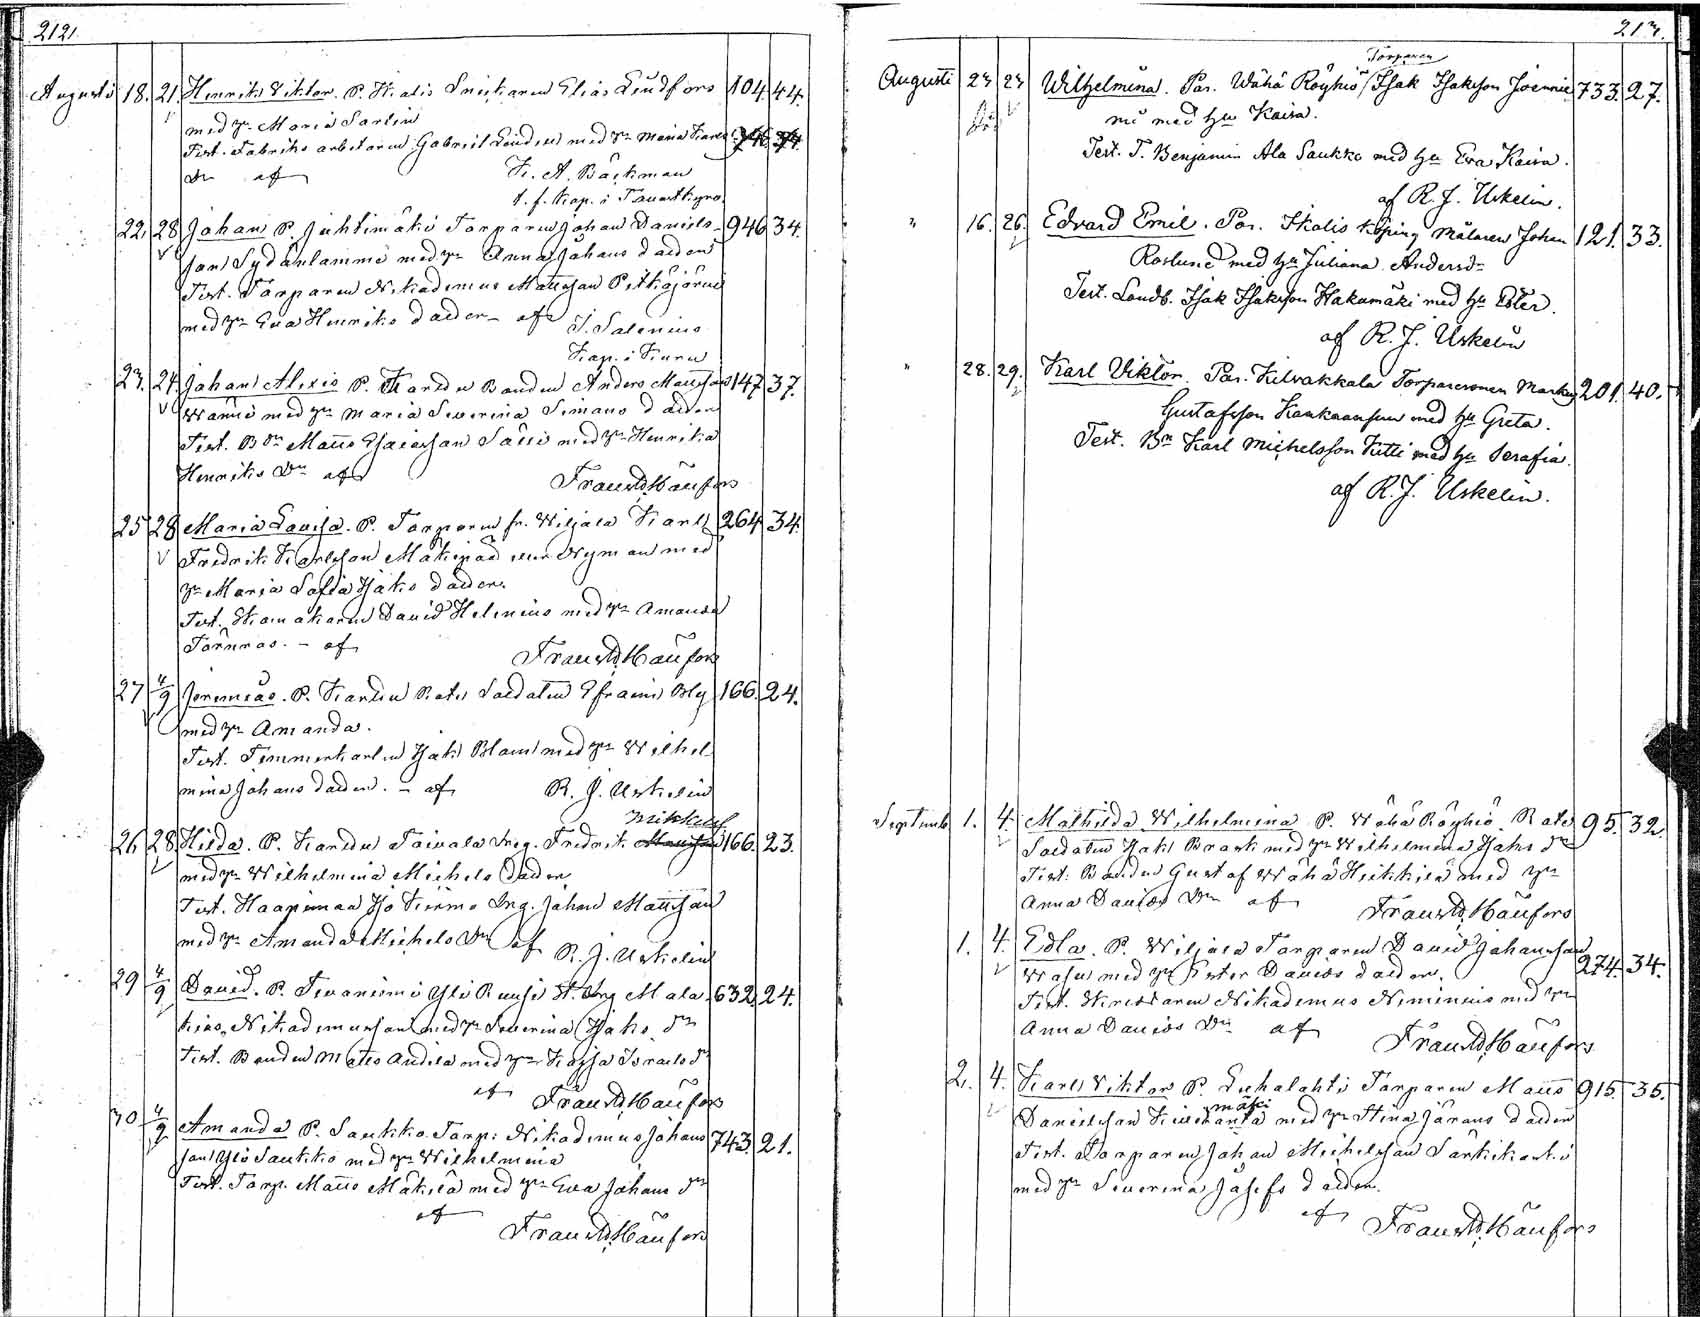 212.
Augusti 18. 21. Henrik Viktor. P. Ikalis Snickaren Elias Lindfors 104. 44.
med hu Maria Sarlin
Test. Fabriks arbetaren Gabriel Linden med hu Maria
Dr af K. A. Bäckman
t. f. Kap. i Tavastkyro.
22. 28 Johan P. Juhtimäki Torparen Johan Daniels- 946 34.
son Sydänlammi med hu Anna Johans dotter
Test. Torparen Nikodemus Mattsson Pitkäjärvi
med hu Eva Henriks dotter - af J. Salenius
Kap. i Kuru
23. 24. Johan Alexis P. Bonden Anders Mattsson 147 37.
med hu Maria Severina Simons dotter
Test. Bdn Matts Esaiasson med hu Henrika
Henriks Dr af Frans Hd. Häufors
25 28 Maria Lovisa. P. Torparen fr. Wiljala Karl 264 34.
Fredrik Karlsson Mäkipää Nyman med
hu Maria Sofia Isaks dotter.
Test. Skomakaren David Helenius med hu Amanda
Törnroos. - af Frans Hd. Häufors
27 4/9 Jeremias. P. Rote Soldaten Efraim Bly 166. 24.
med hu Amanda.
Test. Timmerkarlen Isak Blom med hu Wilhel
mina Johans dotter. - af R. J. Uskelin
Mikkels
26 28 Hilda. P. Taivala Ing. Fredrik 166. 23.
med hu Wilhelmina Michels dotter
Test. Haapimaa Ing. Johan Mattsson
med hu Amanda Michels Dr af R. J. Uskelin
29 4/9 David. P. Ylö Ruusi St. Ing Mala 632. 24.
kias Nikodemusson med hu Severina Isaks dr
Test. Bonden Matts Andila med hu Kajsa Israels dr
af Frans Hd. Häufors
30 4/9 Amanda P. Saukko Torp: Nikodemus Johans 743. 21.
son Ylö Saukko med hu Wilhelmina
Test. Torp. Matts Mäkilä med hu Eva Johans dr
af Frans Hd. Häufors
213.
Torparen
Augusti 23 23 Wilhelmina. Par. Wähä Röyhiö Isak Isaksson 733. 27.
med hu Kaisa.
Test. T. Benjamin Ala Saukko med hu Eva Kaisa.
af R. J. Uskelin.
" 16. 26. Edvard Emil. Par. Ikalis köping Målaren Johan 121. 33.
Roslund med hu Juliana Andersd-
Test. Landb. Isak Isaksson Hakamäki med hu Ester.
af R. J. Uskelin
" 28. 29. Karl Viktor. Par. Kilvakkala Torparesonen Markus 201. 40.
Gustafsson Kankaansuu med hu Greta.
Test. Bn Karl Michelsson Kitti med hu Serafia.
af R. J. Uskelin.
Septemb 1. 4. Mathilda Wilhelmina P. Wähä Röyhiö. Rote 95. 32.
Soldaten Isak Brask med hu Wilhelmina Isaks dr
Test: Bonden Gustaf Wähä Heikkilä med hu
Anna Davids Dr af Frans Hd. Häufors
1. 4. Edla. P. Wiljala Torparen David Johansson 274. 34.
med hu Ester Davids dotter.
Test. Skreddaren Nikodemus Niminius med hu
Anna Davids Dr af Frans Hd. Häufors
2. 4. Karl Viktor P. Luhalahti Torparen Matts 915. 35.
mäki
Danielsson med hu Stina Görans dotter
Test. Torparen Johan Michelsson Särkikoski
med hu Severina Josefs dotter.
af Frans Hd. Häufors